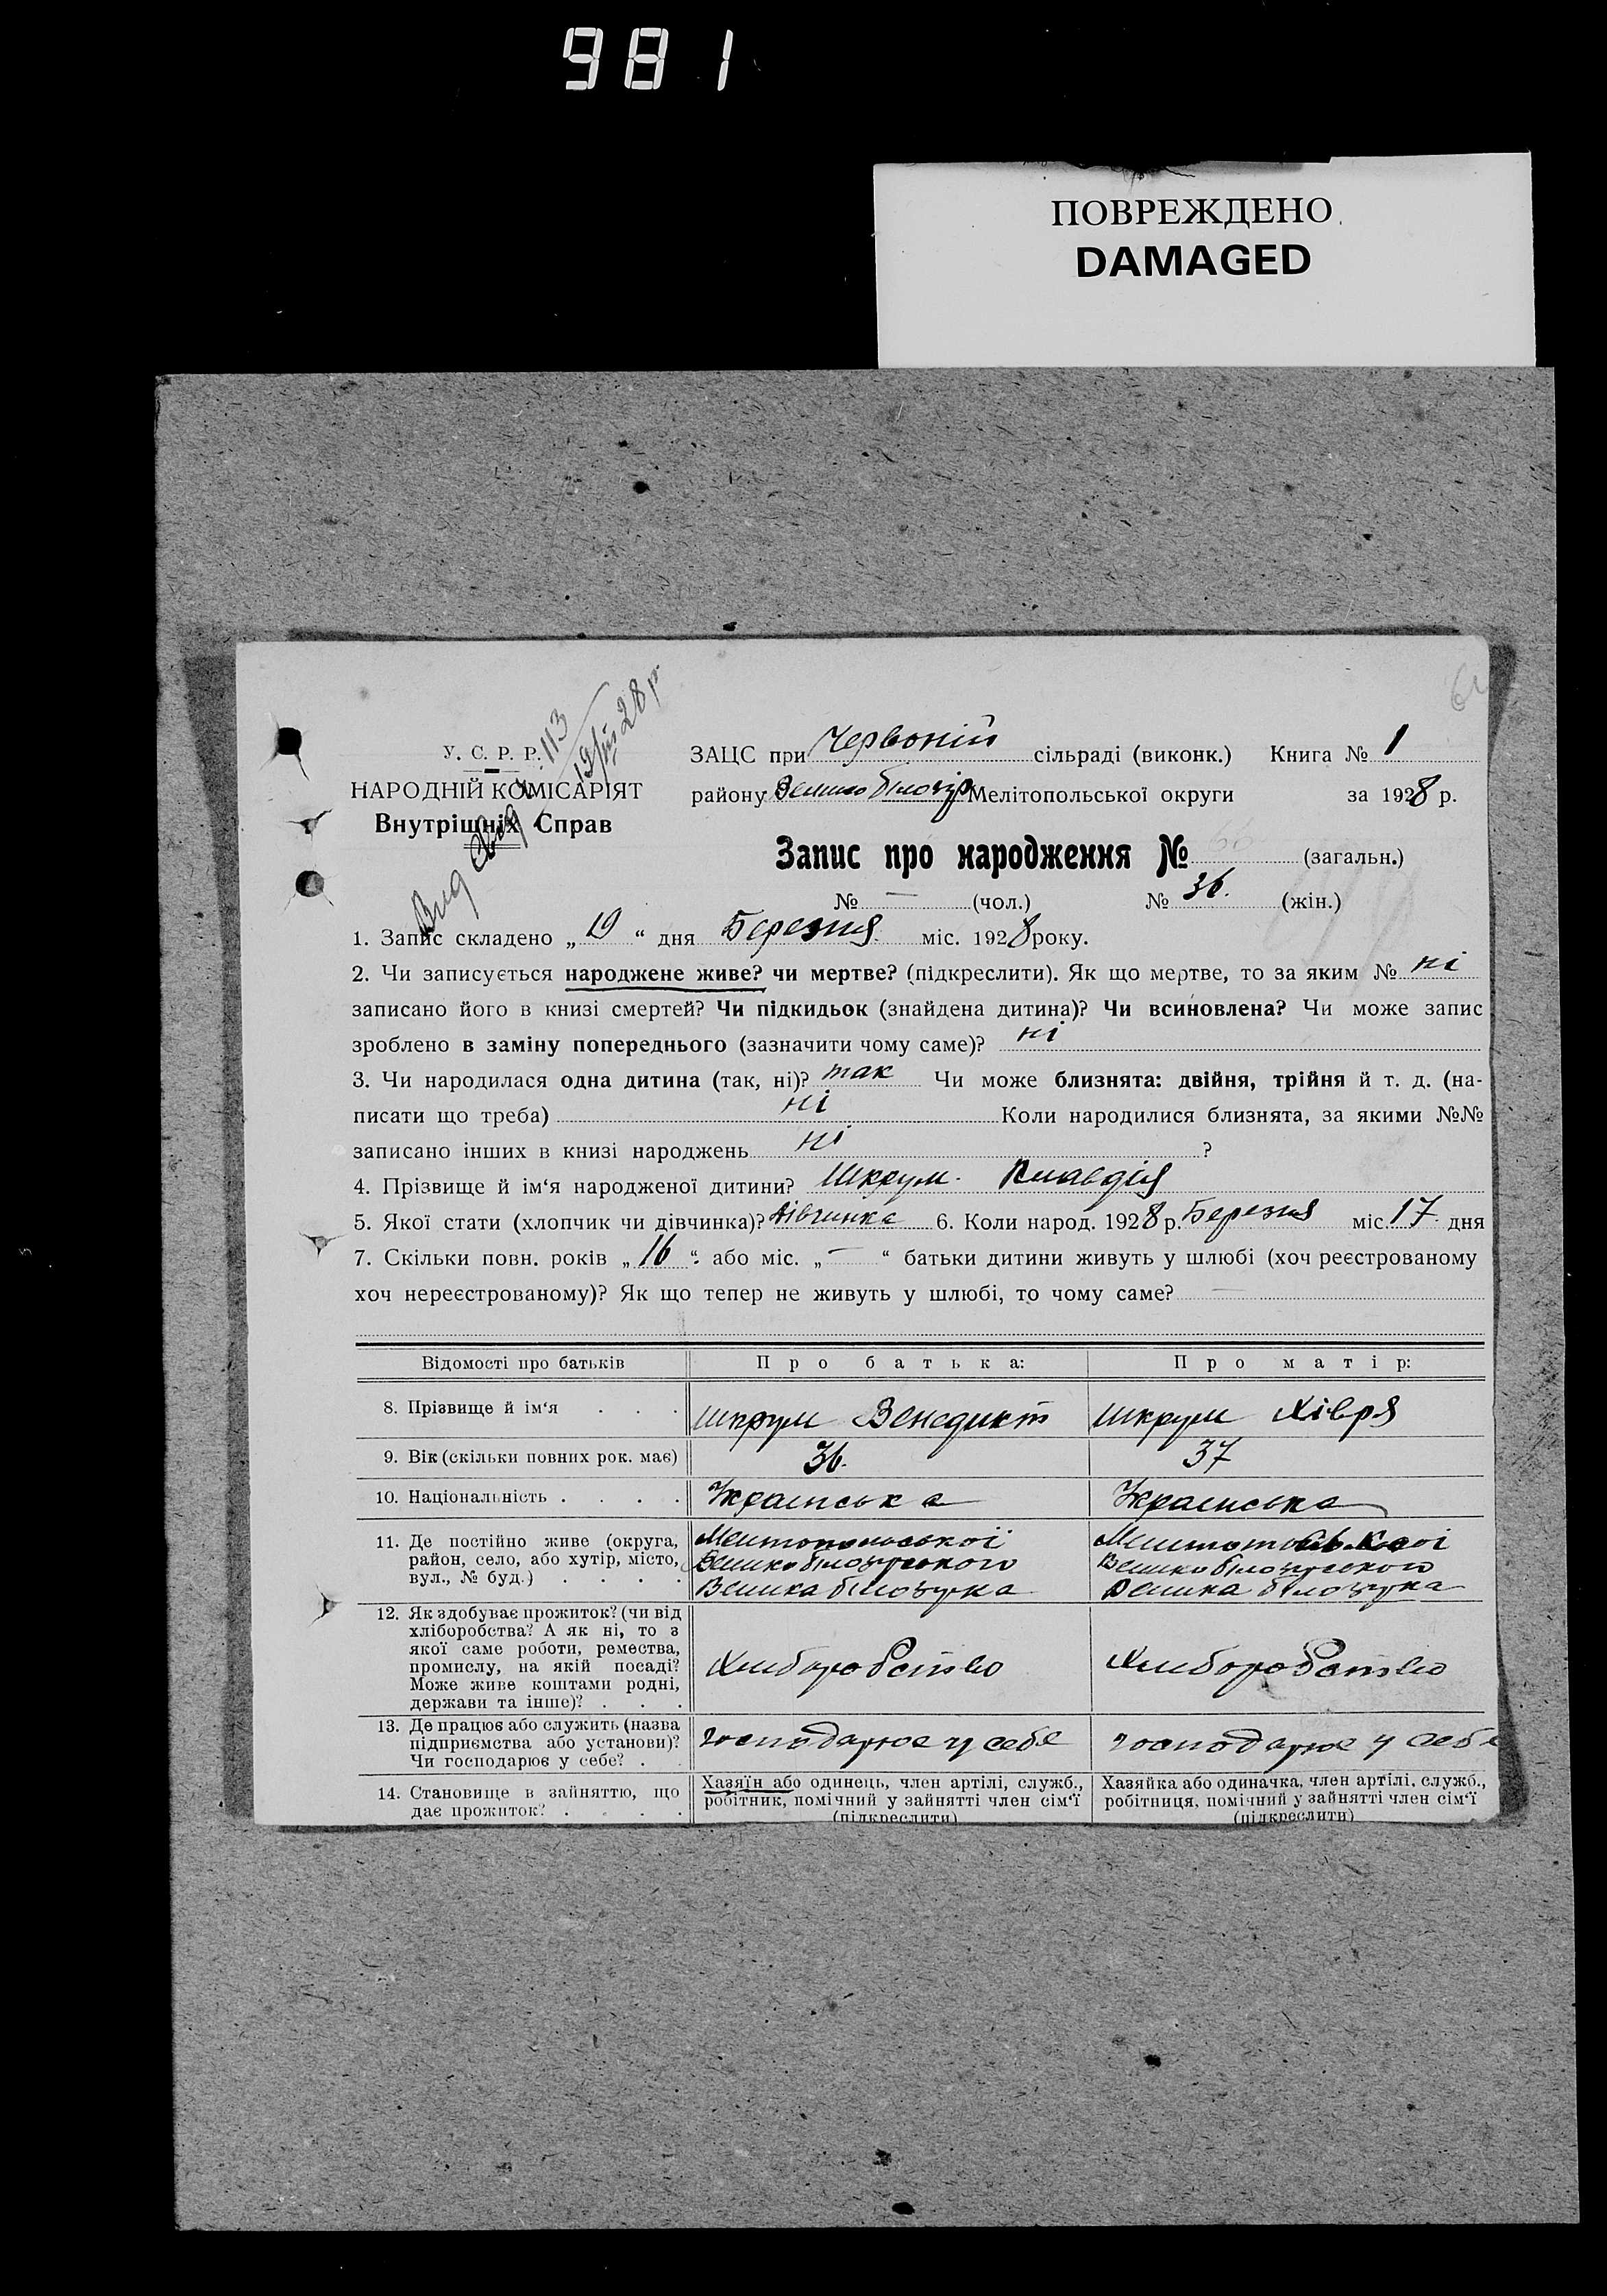 981
ПОВРЕЖДЕНО
DAMAGED
У. С. Р. Р.
НАРОДНІЙ КОМІСАРІЯТ
Внутрішніх Справ
113
ЗАЦС при Червоній сільраді (виконк.) Книга № 1
району Велико білозір Мелітопольської округи за 1928 р.
Запис про народження № 66 (загальн.)
№ — (чол.) № 36. (жін.)
1. Запис складено „ 19 “ дня Березня міс. 1928 року.
2. Чи записується народжене живе? чи мертве? (підкреслити). Як що мертве, то за яким № ні
записано його в книзі смертей? Чи підкидьок (знайдена дитина)? Чи всиновлена? Чи може запис
зроблено в заміну попереднього (зазначити чому саме)? ні
3. Чи народилася одна дитина (так, ні)? так Чи може близнята: двійня, трійня й т. д. (на-
писати що треба) ні Коли народилися близнята, за якими №№
записано інших в книзі народжень ні ?
4. Прізвище й ім‘я народженої дитини? Шкрум. Клавдія
5. Якої стати (хлопчик чи дівчинка)? дівчинка 6. Коли народ. 1928 р. Березня міс. 17 дня
7. Скільки повн. років „ 16 “ або міс. „ — “ батьки дитини живуть у шлюбі (хоч реєстрованому
хоч нереєстрованому)? Як що тепер не живуть у шлюбі, то чому саме? —
Відомості про батьків Про батька: Про матір:
8. Прізвище й ім‘я . . . Шкрум Венедикт Шкрум Хівря
9. Вік (скільки повних рок. має) 36. 37
10. Національність . . . . Українська Українська
11. Де постійно живе (округа,
район, село, або хутір, місто,
вул., № буд.) . . . .
Мелитопольської
Великобілозурського
Велика білозурка
Мелитопольської
Великобілозурського
Велика білозурка
12. Як здобуває прожиток? (чи від
хліборобства? А як ні, то з
якої саме роботи, ремества,
промислу, на якій посаді?
Може живе коштами родні,
держави та інше)? . . .
Хлиборобство
Хлиборобство
13. Де працює або служить (назва
підприємства або установи)?
Чи господарює у себе? . .
господарює у себе
господарює у себе
14. Становище в зайняттю, що
дає прожиток? . . . .
Хазяїн або одинець, член артілі, служб.,
робітник, помічний у зайнятті член сім‘ї
(підкреслити)
Хазяйка або одиначка, член артілі, служб.,
робітниця, помічний у зайнятті член сім‘ї
(підкреслити)